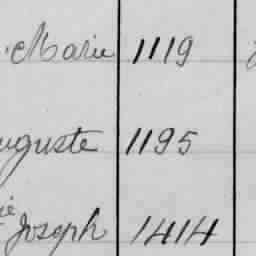 Marie 1119
uguste 1195
ie
Joseph 1414